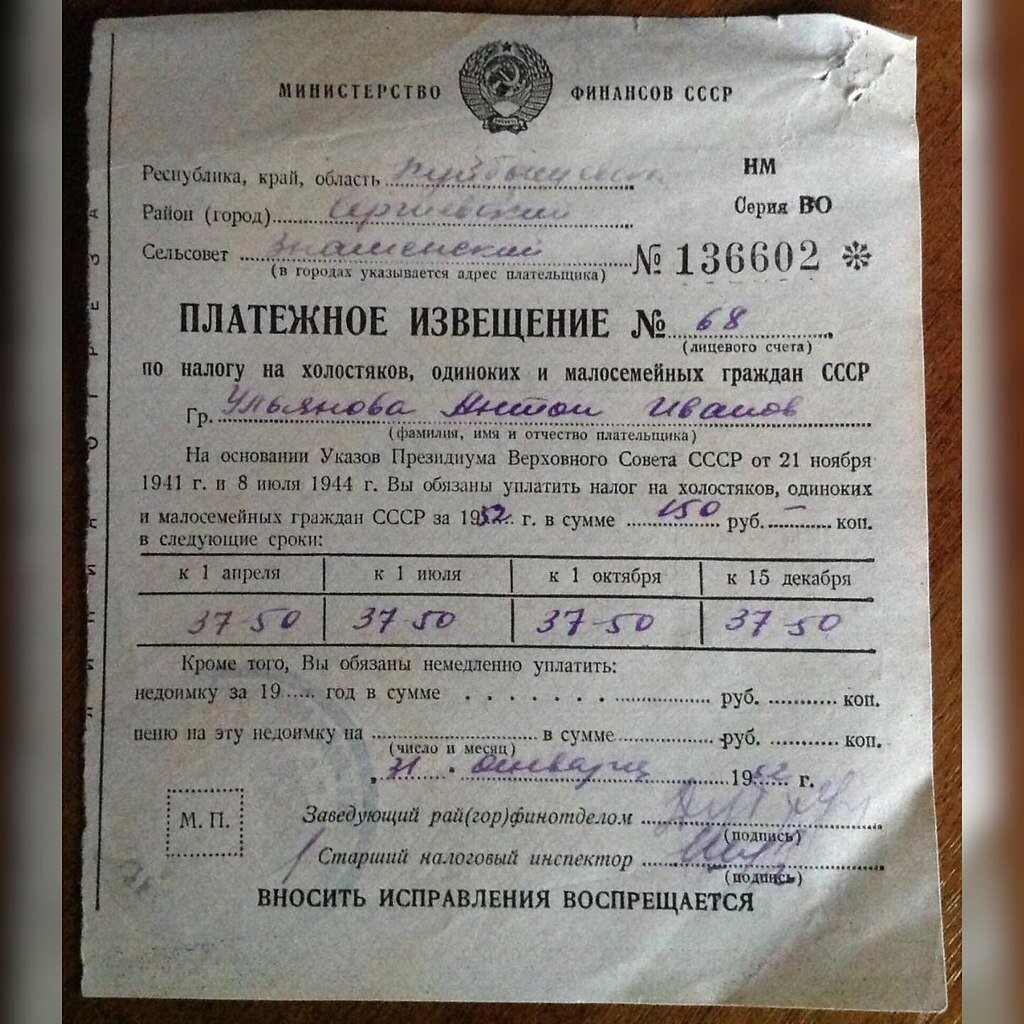 МИНИСТЕРСТВО ФИНАНСОВ СССР
НМ
Республика, край, область Куйбышевская
Район (город) Сергиевский
Серия ВО
Сельсовет Знаменский
(в городах указывается адрес плательщика)
№ 136602
ПЛАТЕЖНОЕ ИЗВЕЩЕНИЕ № 68
(лицевого счета)
по налогу на холостяков, одиноких и малосемейных граждан СССР
Гр. Ульянова Антон Иванов
(фамилия, имя и отчество плательщика)
На основании Указов Президиума Верховного Совета СССР от 21 ноября
1941 г. и 8 июля 1944 г. Вы обязаны уплатить налог на холостяков, одиноких
и малосемейных граждан СССР за 1952 г. в сумме 150 руб. — коп.
в следующие сроки:
к 1 апреля к 1 июля к 1 октября к 15 декабря
37-50 37-50 37-50 37-50
Кроме того, Вы обязаны немедленно уплатить:
недоимку за 19..... год в сумме руб. коп.
пеню на эту недоимку на в сумме руб. коп.
(число и месяц)
„31 " января 1952 г.
М. П.
Заведующий рай(гор)финотделом
(подпись)
Старший налоговый инспектор
(подпись)
ВНОСИТЬ ИСПРАВЛЕНИЯ ВОСПРЕЩАЕТСЯ